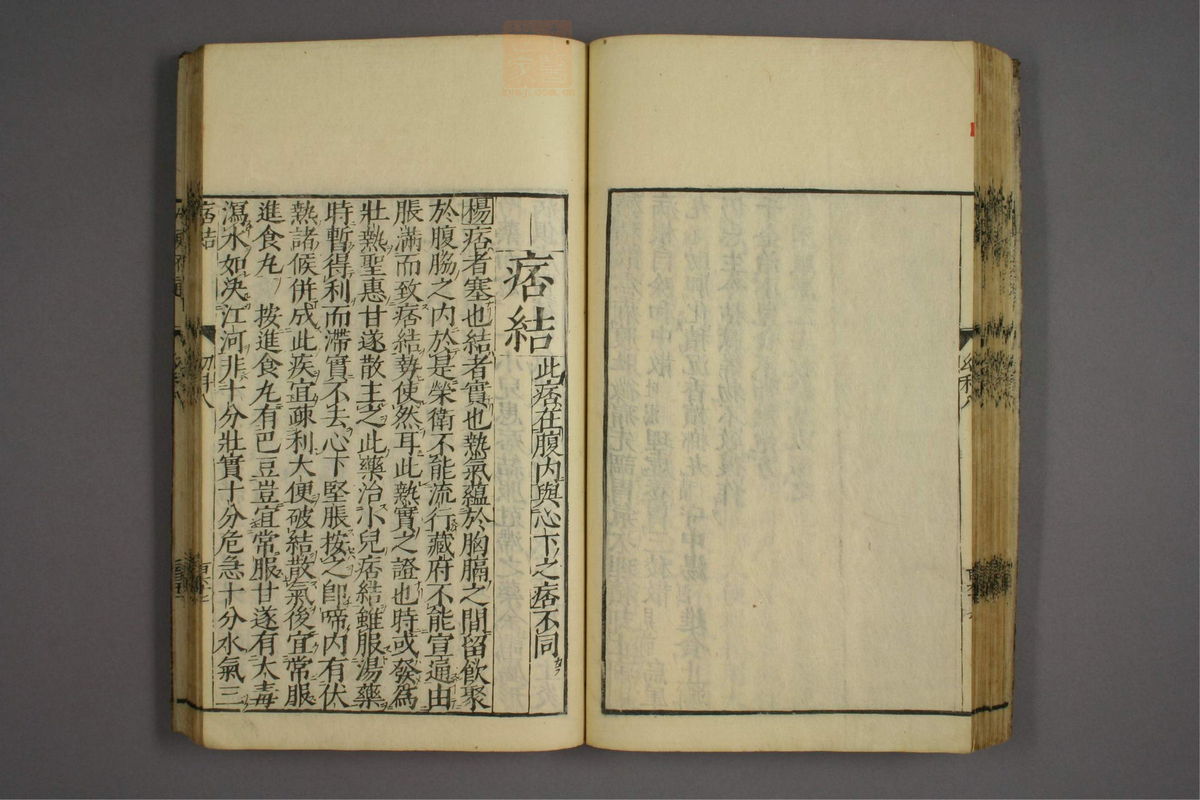 痞結 此痞在腹內與心下之痞不同
楊痞者塞也結者實也熱氣蘊於胸膈之間留飲聚
於腹脇之內於是榮衛不能流行藏府不能宣通由
脹滿而致痞結勢使然耳此熱實之證也時或發為
壯熱聖惠甘遂散主之此藥治小兒痞結雖服湯藥
時暫得利而滯實不去心下堅脹按之即啼內有伏
熱諸候併成此疾宜疎利大便破結散氣後宜常服
進食丸 按進食丸有巴豆豈宜常服甘遂有大毒
瀉水如決江河非十分壯實十分危急十分水氣三
痞結